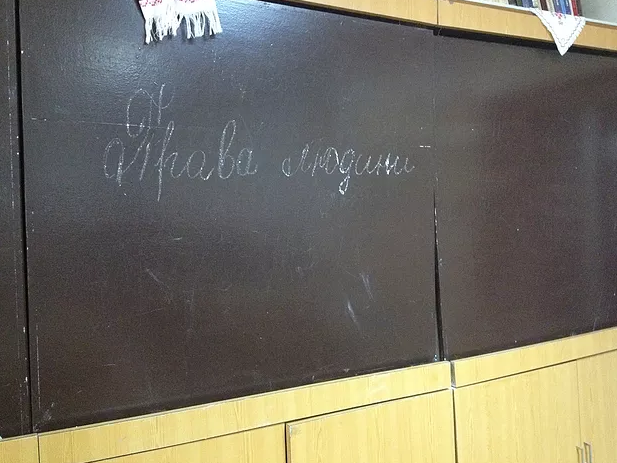 Права людини